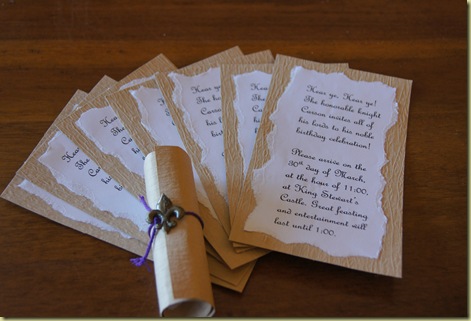 Hear ye, Hear ye!
The honorable knight
Carson invites all of
his lords to his noble
birthday celebration!
Please arrive on the
30th day of March,
at the hour of 11:00,
at King Stewart's
Castle. Great feasting
and entertainment will
last until 1:00.